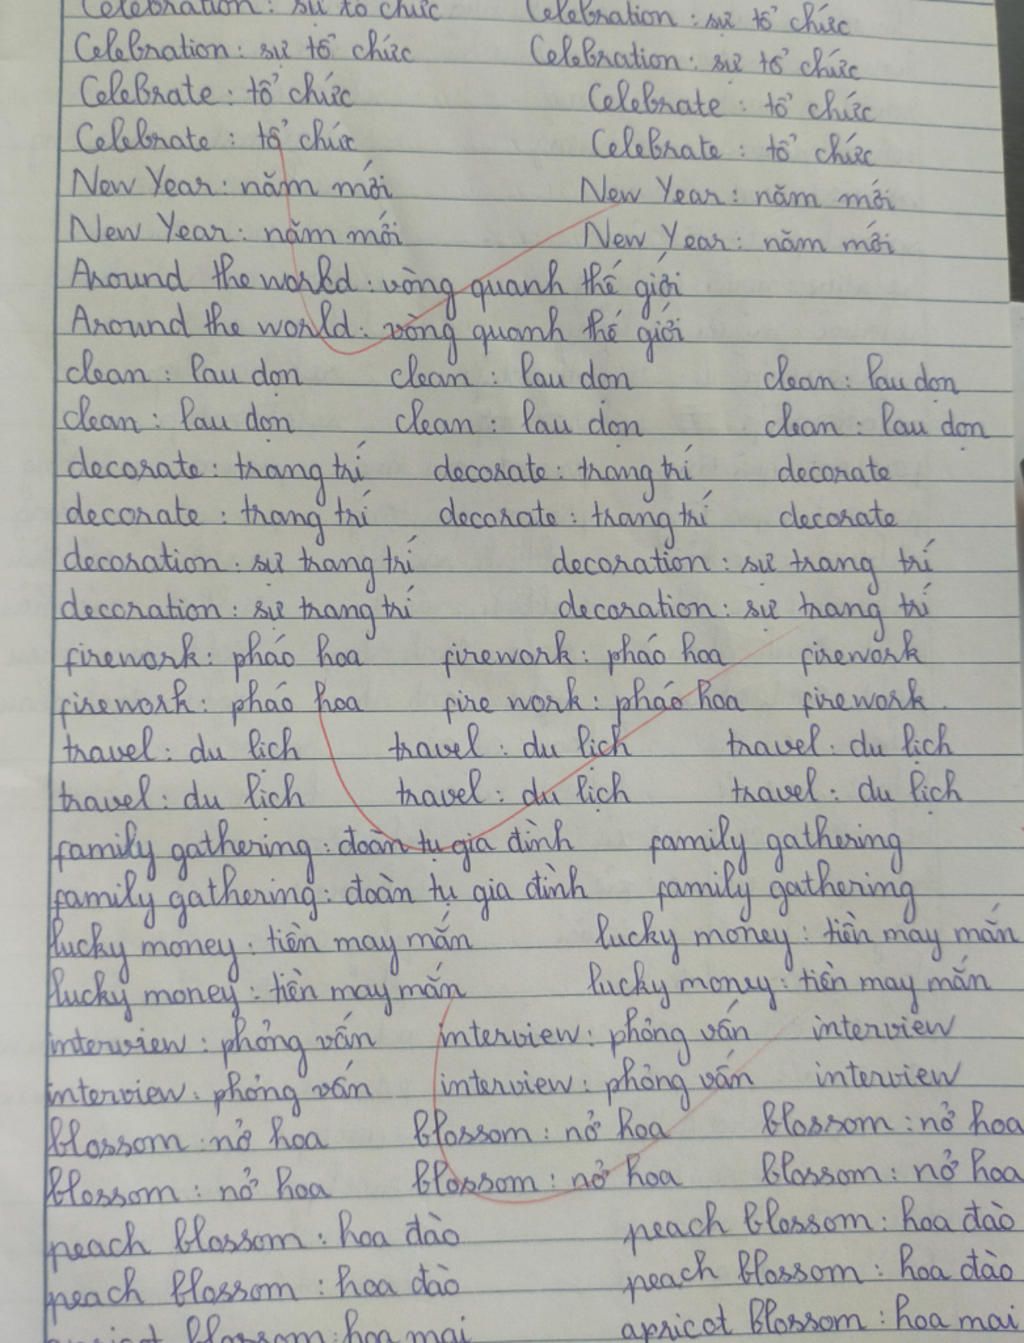 Celebration : sự tổ chức Celebration : sự tổ chức
Celebration : sự tổ chức Celebration : sự tổ chức
Celebrate : tổ chức Celebrate : tổ chức
Celebrate : tổ chức Celebrate : tổ chức
New Year : năm mới New Year : năm mới
New Year : năm mới New Year : năm mới
Around the world : vòng quanh thế giới
Around the world : vòng quanh thế giới
clean : lau dọn clean : lau dọn clean : lau dọn
clean : lau dọn clean : lau dọn clean : lau dọn
decorate : trang trí decorate : trang trí decorate
decorate : trang trí decorate : trang trí decorate
decoration : sự trang trí decoration : sự trang trí
decoration : sự trang trí decoration : sự trang trí
firework : pháo hoa firework : pháo hoa firework
firework : pháo hoa fire work : pháo hoa firework.
travel : du lịch travel : du lịch travel : du lịch
travel : du lịch travel : du lịch travel : du lịch
family gathering : đoàn tụ gia đình family gathering
family gathering : đoàn tụ gia đình family gathering
lucky money : tiền may mắn lucky money : tiền may mắn
lucky money : tiền may mắn lucky money : tiền may mắn
interview : phỏng vấn interview : phỏng vấn interview
interview : phỏng vấn interview : phỏng vấn interview
blossom : nở hoa blossom : nở hoa blossom : nở hoa
blossom : nở hoa blossom : nở hoa blossom : nở hoa
peach blossom : hoa đào peach blossom : hoa đào
peach blossom : hoa đào peach blossom : hoa đào
apricot blossom : hoa mai apricot blossom : hoa mai